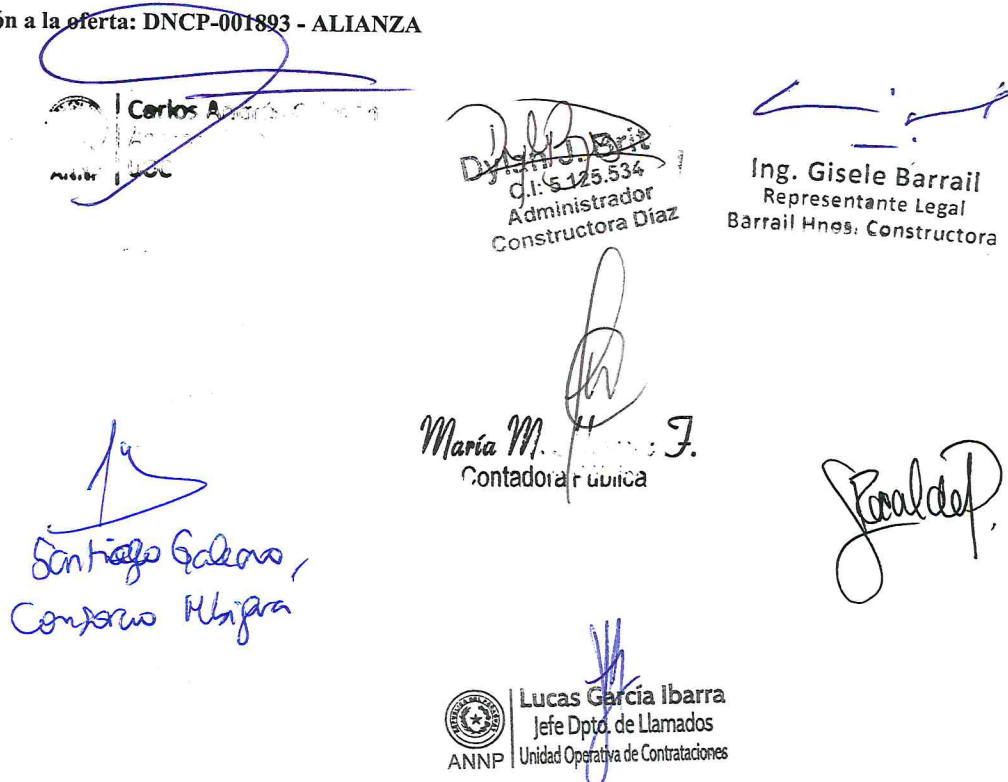 ón a la oferta: DNCP-001893 - ALIANZA
Carlos
UOC
Dylan J. Brit
C.I: 5.125.534
Administrador
Constructora Díaz
Ing. Gisele Barrail
Representante Legal
Barrail Hnos. Constructora
María M. F.
Contadora Pública
Santiago Galeano,
Consorcio
RecaldeP.
Lucas García Ibarra
Jefe Dpto. de Llamados
ANNP Unidad Operativa de Contrataciones